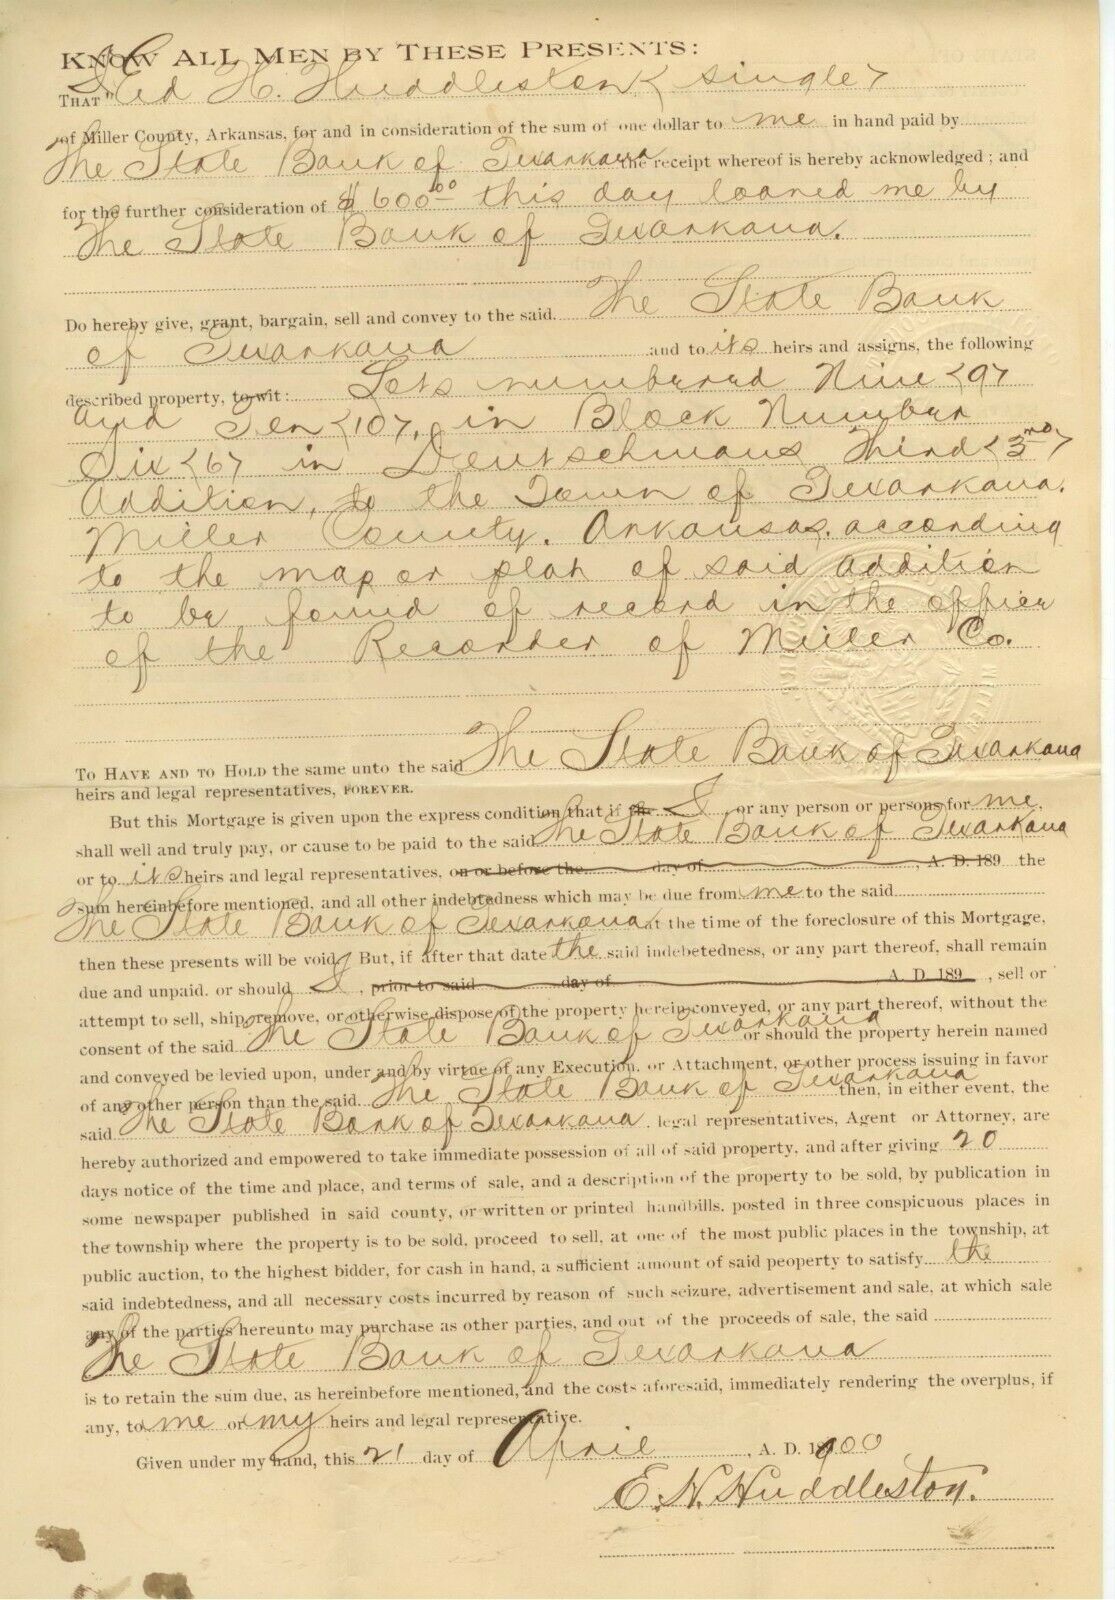 KNOW ALL MEN BY THESE PRESENTS:
THAT I Ed H. Huddleston < single >
of Miller County, Arkansas, for and in consideration of the sum of one dollar to me in hand paid by
The State Bank of Texarkana the receipt whereof is hereby acknowledged; and
for the further consideration of $600.00 this day loaned me by
The State Bank of Texarkana.
Do hereby give, grant, bargain, sell and convey to the said The State Bank
of Texarkana and to its heirs and assigns, the following
described property, to-wit: Lots numbered Nine <9>
and Ten <10>, in Block Number
Six <6> in Deutschmans Third <3rd>
Addition, to the Town of Texarkana.
Miller County. Arkansas. according
to the map or plat of said addition
to be found of record in the office
of the Recorder of Miller Co.
TO HAVE AND TO HOLD the same unto the said The State Bank of Texarkana
heirs and legal representatives, FOREVER.
But this Mortgage is given upon the express condition that if I or any person or persons for me,
shall well and truly pay, or cause to be paid to the said The State Bank of Texarkana
or to its heirs and legal representatives, on or before the day of , A. D. 189 the
sum hereinbefore mentioned, and all other indebtedness which may be due from me to the said
The State Bank of Texarkana at the time of the foreclosure of this Mortgage,
then these presents will be void. But, if after that date the said indebetedness, or any part thereof, shall remain
due and unpaid. or should I, prior to said day of A. D. 189 , sell or
attempt to sell, ship, remove, or otherwise dispose of the property herein conveyed, or any part thereof, without the
consent of the said The State Bank of Texarkana or should the property herein named
and conveyed be levied upon, under and by virtue of any Execution. or Attachment, or other process issuing in favor
of any other person than the said The State Bank of Texarkana then, in either event, the
said The State Bank of Texarkana, legal representatives, Agent or Attorney, are
hereby authorized and empowered to take immediate possession of all of said property, and after giving 20
days notice of the time and place, and terms of sale, and a description of the property to be sold, by publication in
some newspaper published in said county, or written or printed handbills. posted in three conspicuous places in
the township where the property is to be sold, proceed to sell, at one of the most public places in the township, at
public auction, to the highest bidder, for cash in hand, a sufficient amount of said peoperty to satisfy the
said indebtedness, and all necessary costs incurred by reason of such seizure, advertisement and sale, at which sale
any of the parties hereunto may purchase as other parties, and out of the proceeds of sale, the said
The State Bank of Texarkana
is to retain the sum due, as hereinbefore mentioned, and the costs aforesaid, immediately rendering the overplus, if
any, to me or my heirs and legal representative.
Given under my hand, this 21 day of April, A. D. 1900
E. H. Huddleston.